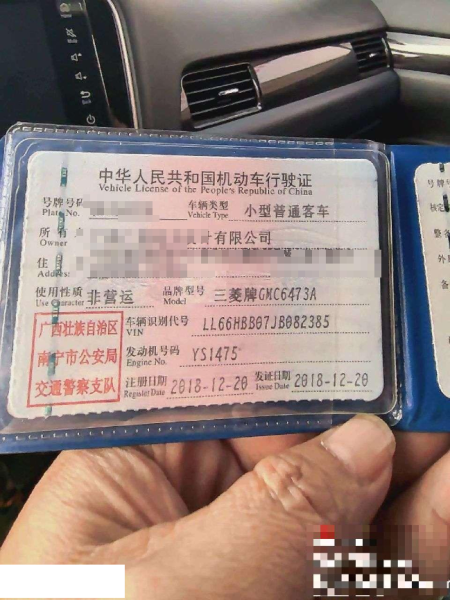 中华人民共和国机动车行驶证
Vehicle License of the People's Republic of China
号牌号码
Plate No.
车辆类型 小型普通客车
Vehicle Type
所有人 设计有限公司
Owner
住
使用性质 非营运 品牌型号 三菱牌GMC6473A
Use Character Model
广西壮族自治区
南宁市公安局
交通警察支队
车辆识别代号 LL66HBB07JB082385
VIN
发动机号码 YS1475
Engine No.
注册日期 2018-12-20 发证日期 2018-12-20
Register Date Issue Date
号牌
核定
整备
外
备